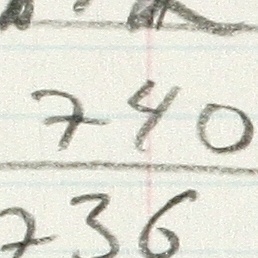 740
736